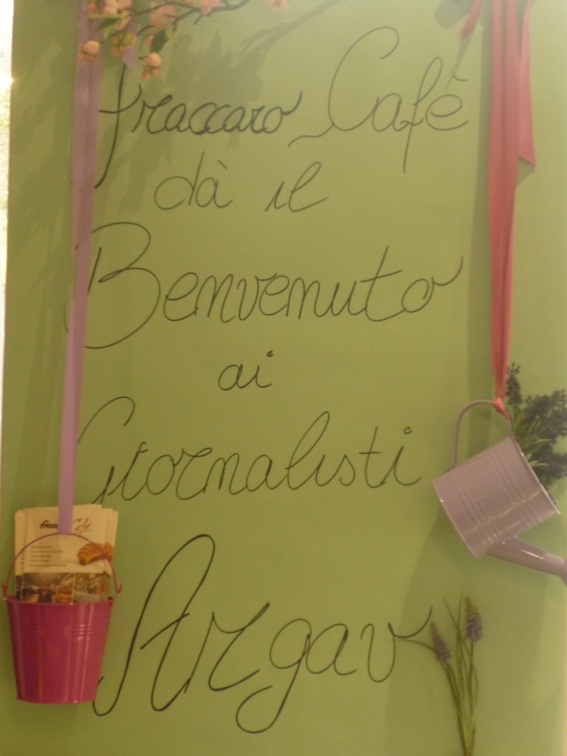 Fraccaro Cafè
dà il
Benvenuto
ai
Giornalisti
Argav